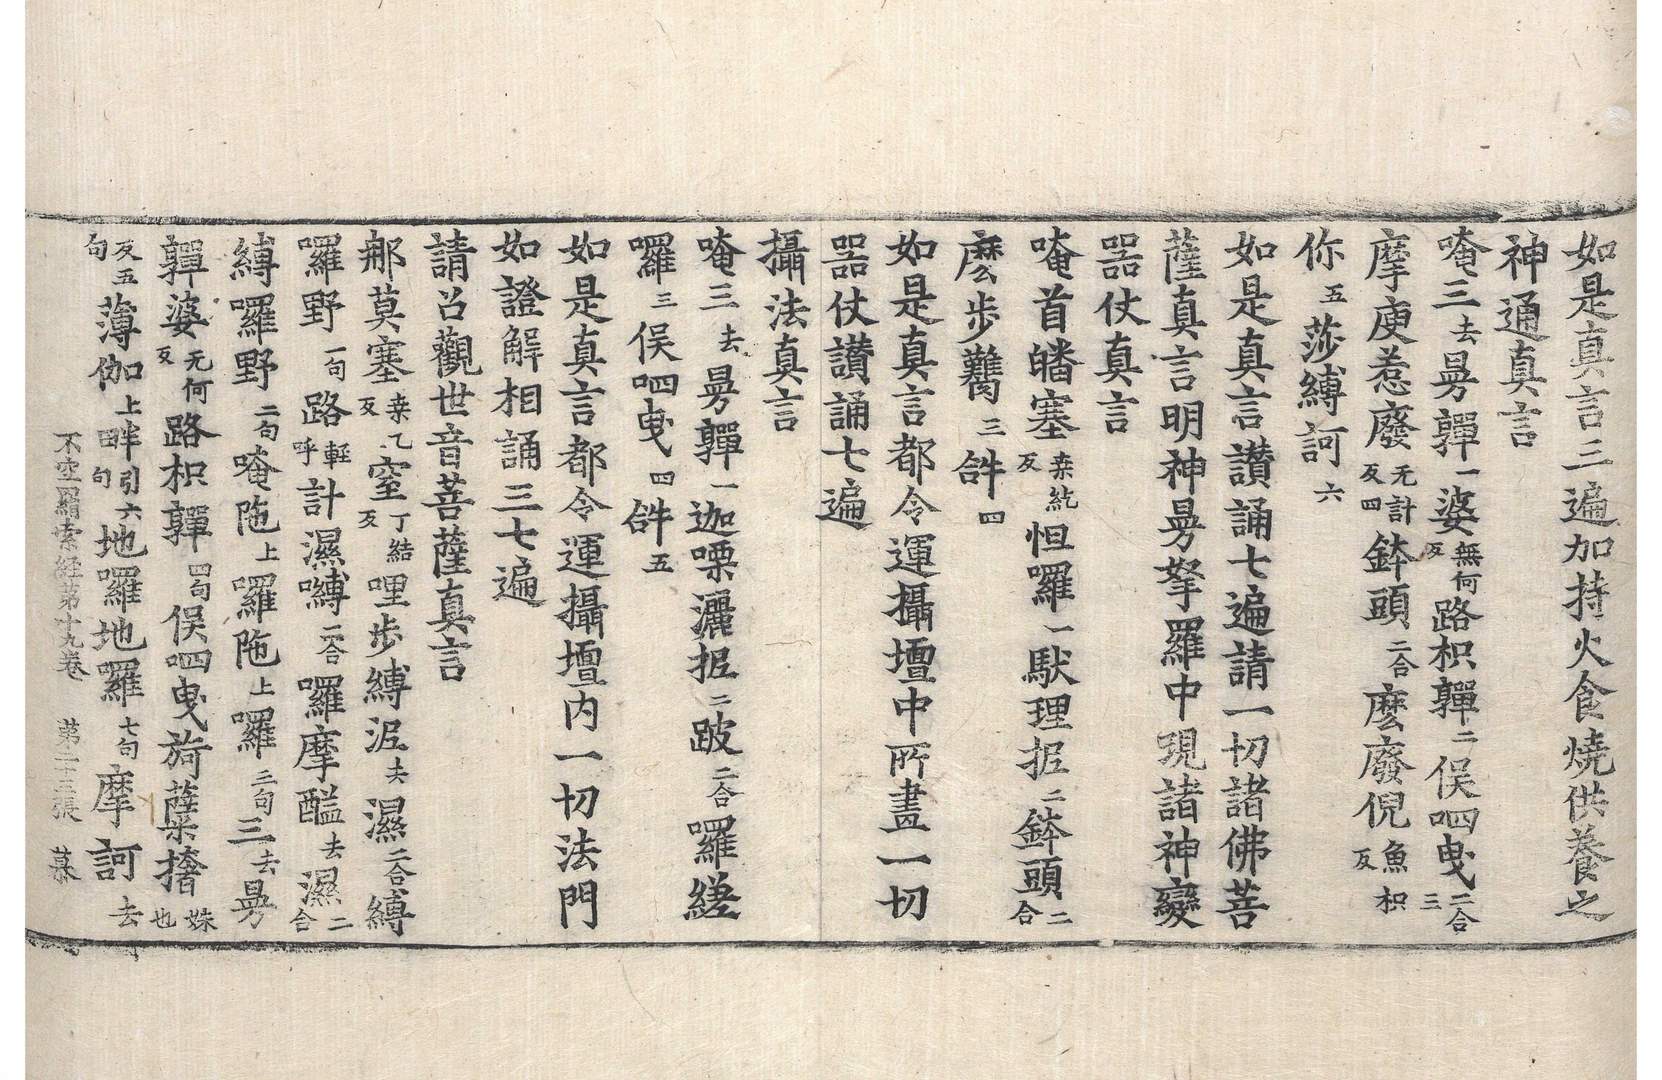 如是真言三遍加持火食燒供養之
神通真言
唵三去曼鄲一婆無何反路枳鄲二俣呬曳二合三
摩庾惹廢无計反四鉢頭二合麽廢倪魚枳反
你五莎縛訶六
如是真言讃誦七遍請一切諸佛菩
薩真言明神曼拏羅中現諸神變
器仗真言
唵首皤塞桒紇反怛囉一馱理抳二鉢頭二合
麽步鸈三𤙖四
如是真言都令運攝壇中所畫一切
器仗讃誦七遍
攝法真言
唵三去曼鄲一迦㗚灑抳二跛二合囉縒
囉三俣呬曳四𤙖五
如是真言都令運攝壇內一切法門
如證解相誦三七遍
請召觀世音菩薩真言
那莫塞桒乙反窒丁結反哩步縛泥去濕二合縛
囉野一句路輕呼計濕嚩二合囉摩醯去濕二合
縛囉野二句唵陁上囉陁上囉三句三去曼
鄲婆无何反路枳鄲四句俣呬曳旖薩㮈撦姝也
反五句薄伽上畔引六四句地囉地囉七句摩訶去
不空羂索経苐十九卷 苐二十三張 慕